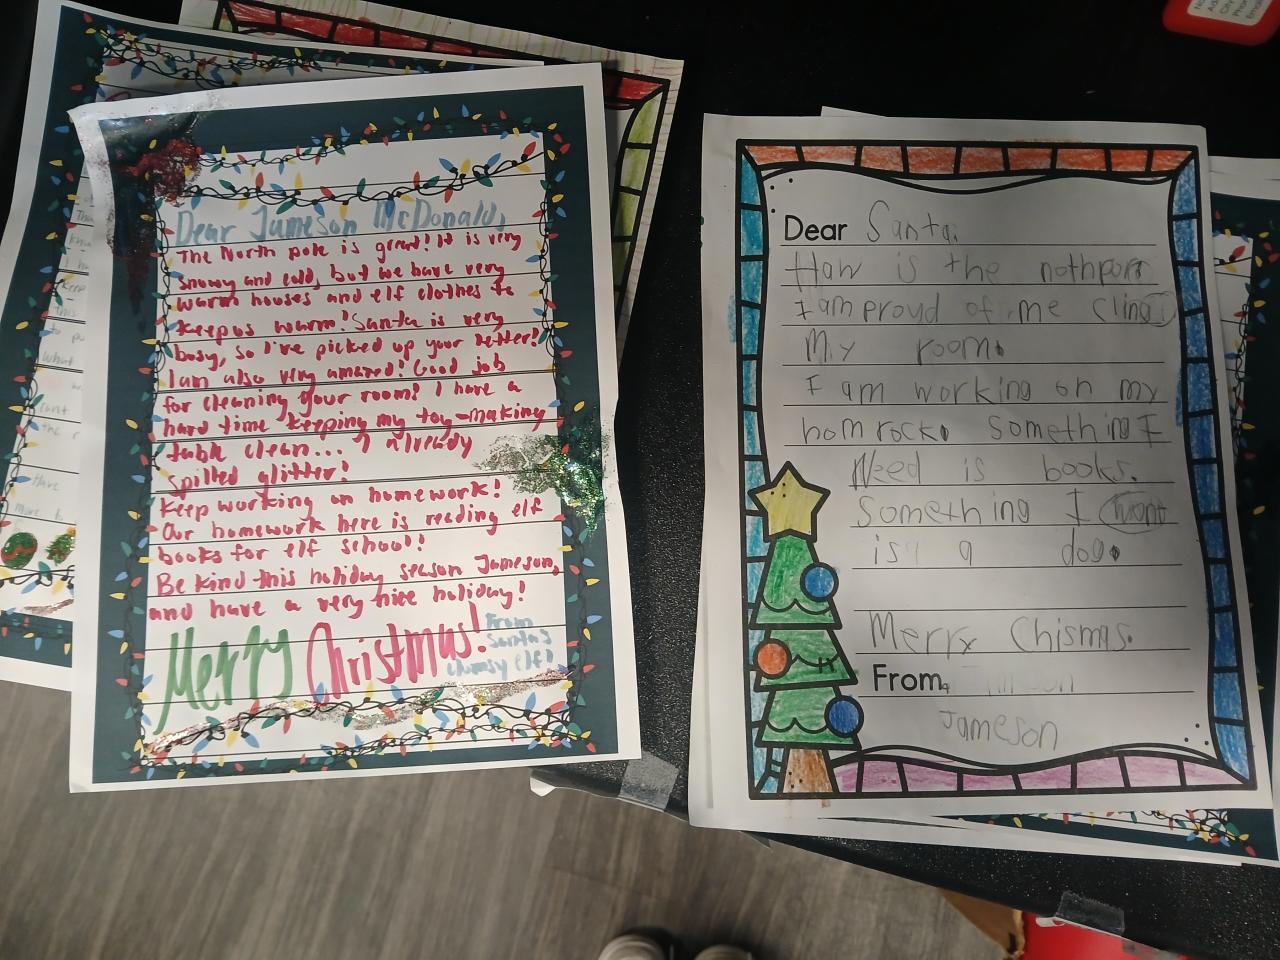 Dear Jameson McDonald,
The North pole is great! It is very
snowy and cold, but we have very
warm houses and elf clothes to
keep us warm! Santa is very
busy, so I've picked up your letter!
I am also very amazed! Good job
for cleaning your room! I have a
hard time keeping my toy-making
table clean... I already
spilled glitter!
Keep working on homework!
Our homework here is reading elf
books for elf school!
Be kind this holiday season Jameson,
and have a very nice holiday!
Merry Christmas!
From
Santa's
clumsy elf!
Dear Santa.
How is the
I am proud of me
My room.
I am working on my
homrock. Somethin I
Need is books.
Something I wont
is a dog.
Merry Chismas.
From,
Jameson